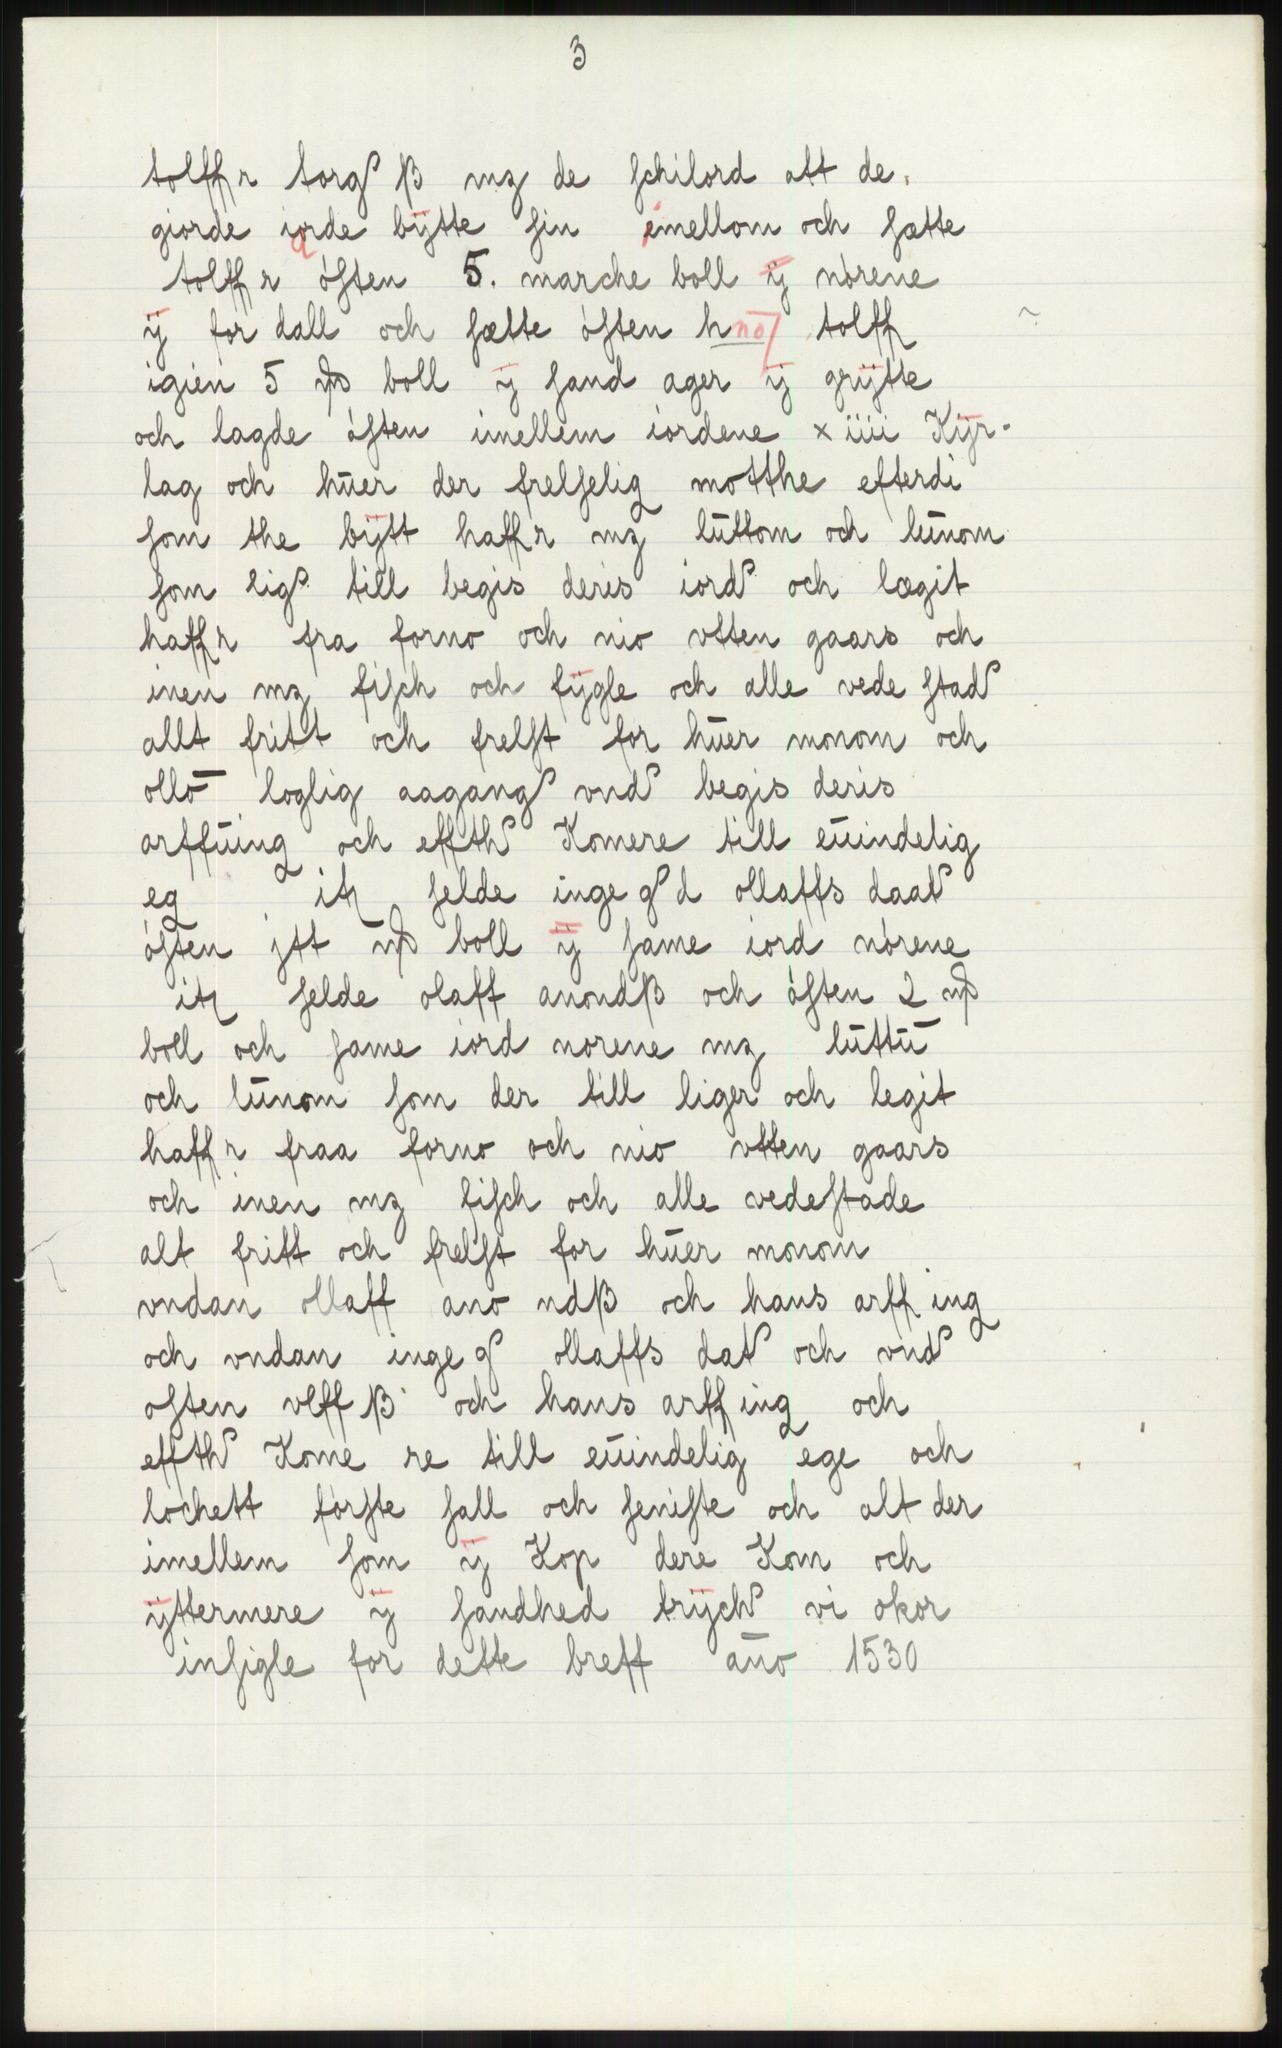 3
tolffr torg ß mz de schilord att de
giorde iorde bÿtte sin imellom och sætte
tolffr østen 5. marche boll ÿ nørene
ÿ før dall och sætte østen h no tolff
igien 5 mß boll ÿ sand ager ÿ grÿtte
och lagde østen imellem iordene x iiii Kÿr-
lag och huer der frelselig motthe efterdi
som the bÿtt haffr mz luttom och lunom
som lig till begis deris iord och lægit
haffr fra forno och nio vtten gaars och
inen mz fisch och fÿgle och alle vede stad
allt fritt och frelst for huer monom och
ollō loglig aagang vnd begis deris
arffuing och effth Komere till euindelig
eg itz selde inge g d ollaffs daat
østen jtt mß boll ÿ same iord nørene
itz selde olaff anondß och østen 2 mß
boll och same iord norene mz luttū
och lunom som der till liger och legit
haffr fraa forno och nio vtten gaars
och inen mz fisch och alle vedestade
alt fritt och frelst for huer monom
vndan ollaff ano ndß och hans arffing
och vndan inge g ollaffs dat och vnd
osten vlff ß och hans arffing och
effth Kome re till euindelig ege och
lochett første sall och seniste och alt der
imellem som ÿ Kop dere Kom och
ÿttermere ÿ sandhed trÿch vi okor
insigle for dette breff año 1530